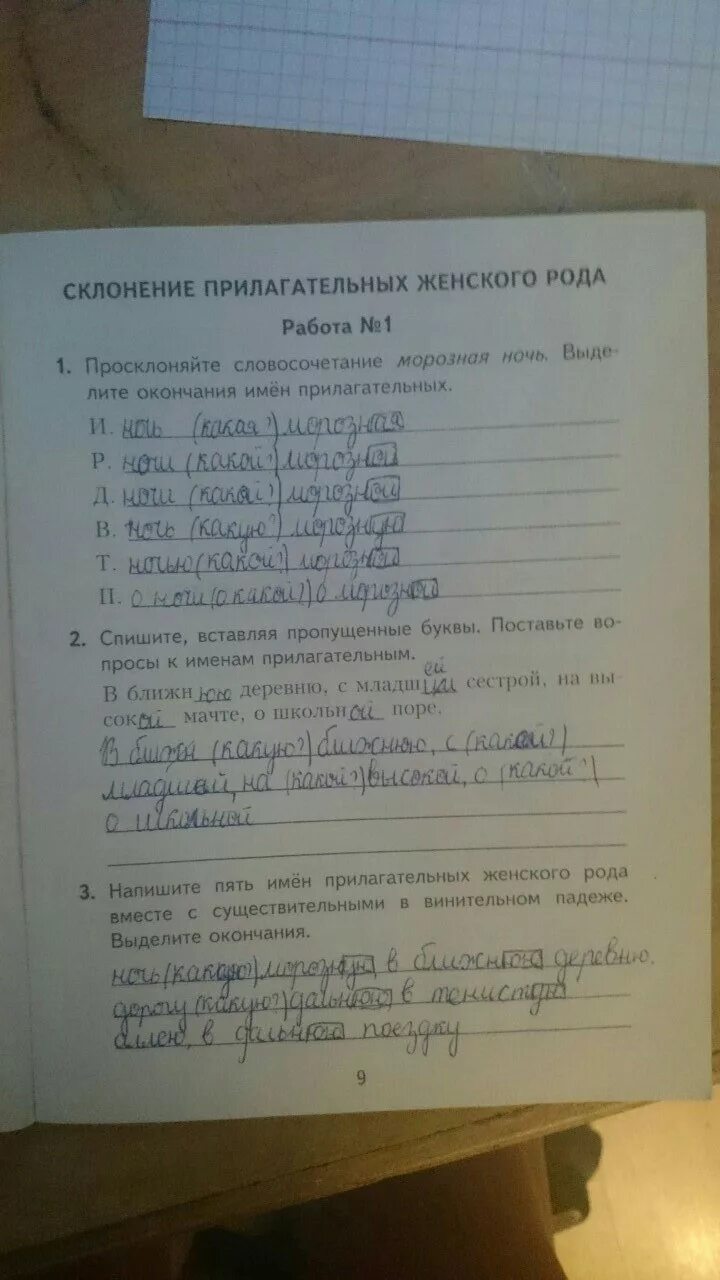 СКЛОНЕНИЕ ПРИЛАГАТЕЛЬНЫХ ЖЕНСКОГО РОДА
Работа №1
1. Просклоняйте словосочетание морозная ночь. Выде-
лите окончания имён прилагательных.
И. ночь (какая?) морозная
Р. ночи (какой?) морозной
Д. ночи (какой?) морозной
В. ночь (какую?) морозную
Т. ночью (какой?) морозной
П. о ночи (о какой?) о морозной
2. Спишите, вставляя пропущенные буквы. Поставьте во-
просы к именам прилагательным.
ей
В ближнюю деревню, с младш сестрой, на вы-
сокой мачте, о школьной поре.
В ближн (какую?) ближнюю, с (какой?)
младшей, на (какой?) высокой, о (какой?)
о школьной
3. Напишите пять имён прилагательных женского рода
вместе с существительными в винительном падеже.
Выделите окончания.
ночь (какую?) морозную в ближнюю деревню,
дорогу (какую?) дальнюю в тенистую
аллею, в дальнюю поездку
9